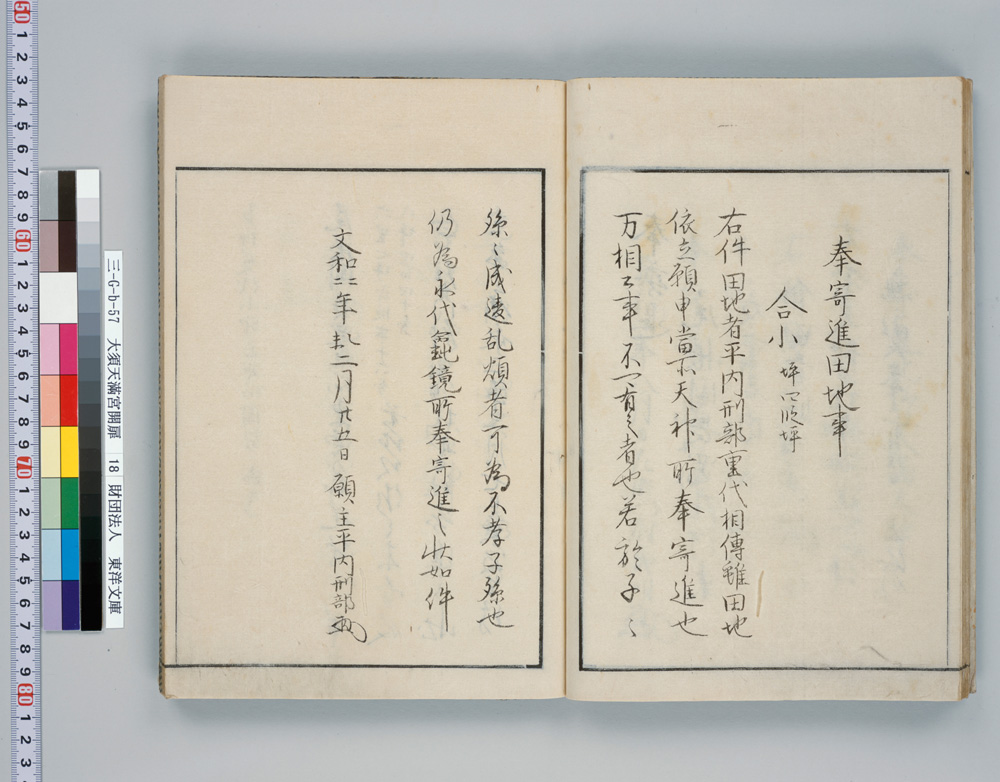 奉寄進田地事
合小 坪四段坪
右件田地者平内刑部重代相傳雖田地
依立願申當所天神所奉寄進也
万相公事不可有之者也若於子々
孫々成違乱煩者可為不孝子孫也
仍為永代龜鏡所奉寄進之状如件
文和二二年二月廿五日 願主平内刑部
三-G-b-57 大須天満宮開扉 18 財団法人 東洋文庫
50
1
2
3
4
5
6
7
8
9
60
1
2
3
4
5
6
7
8
9
70
1
2
3
4
5
6
7
8
9
80
1
2
3